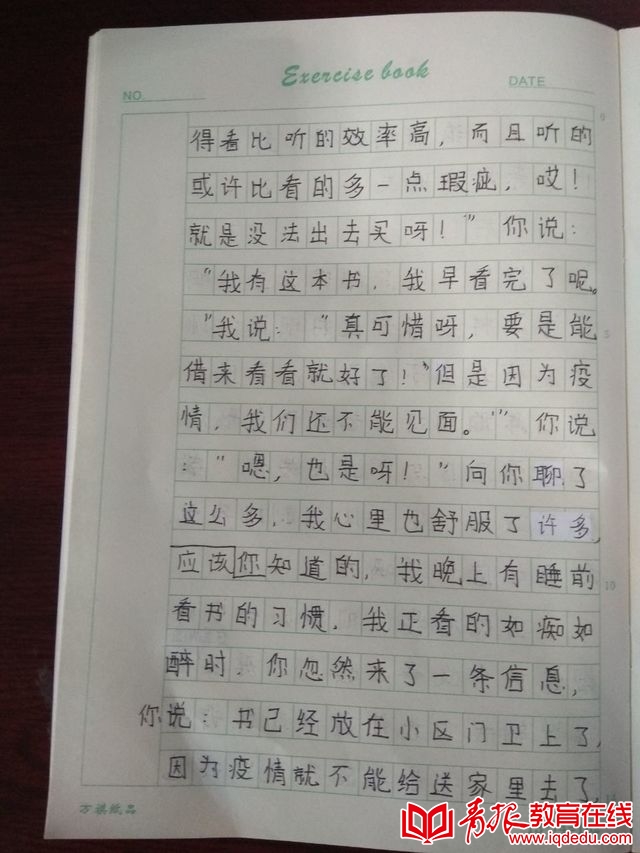 Exercise book
NO.
DATE
得看比听的效率高，而且听的
或许比看的多一点瑕疵，哎！
就是没法出去买呀！”你说：
“我有这本书，我早看完了呢。
”我说：“真可惜呀，要是能
借来看看就好了！”但是因为疫
情，我们还不能见面。’”你说
：“嗯，也是呀！”向你聊了
这么多，我心里也舒服了许多
应该你知道的，我晚上有睡前
看书的习惯，我正看的如痴如
醉时，你忽然来了一条信息，
你说：书已经放在小区门卫上了，
因为疫情就不能给送家里去了，
5
10
万祺纸品
青报教育在线
www.iqdedu.com